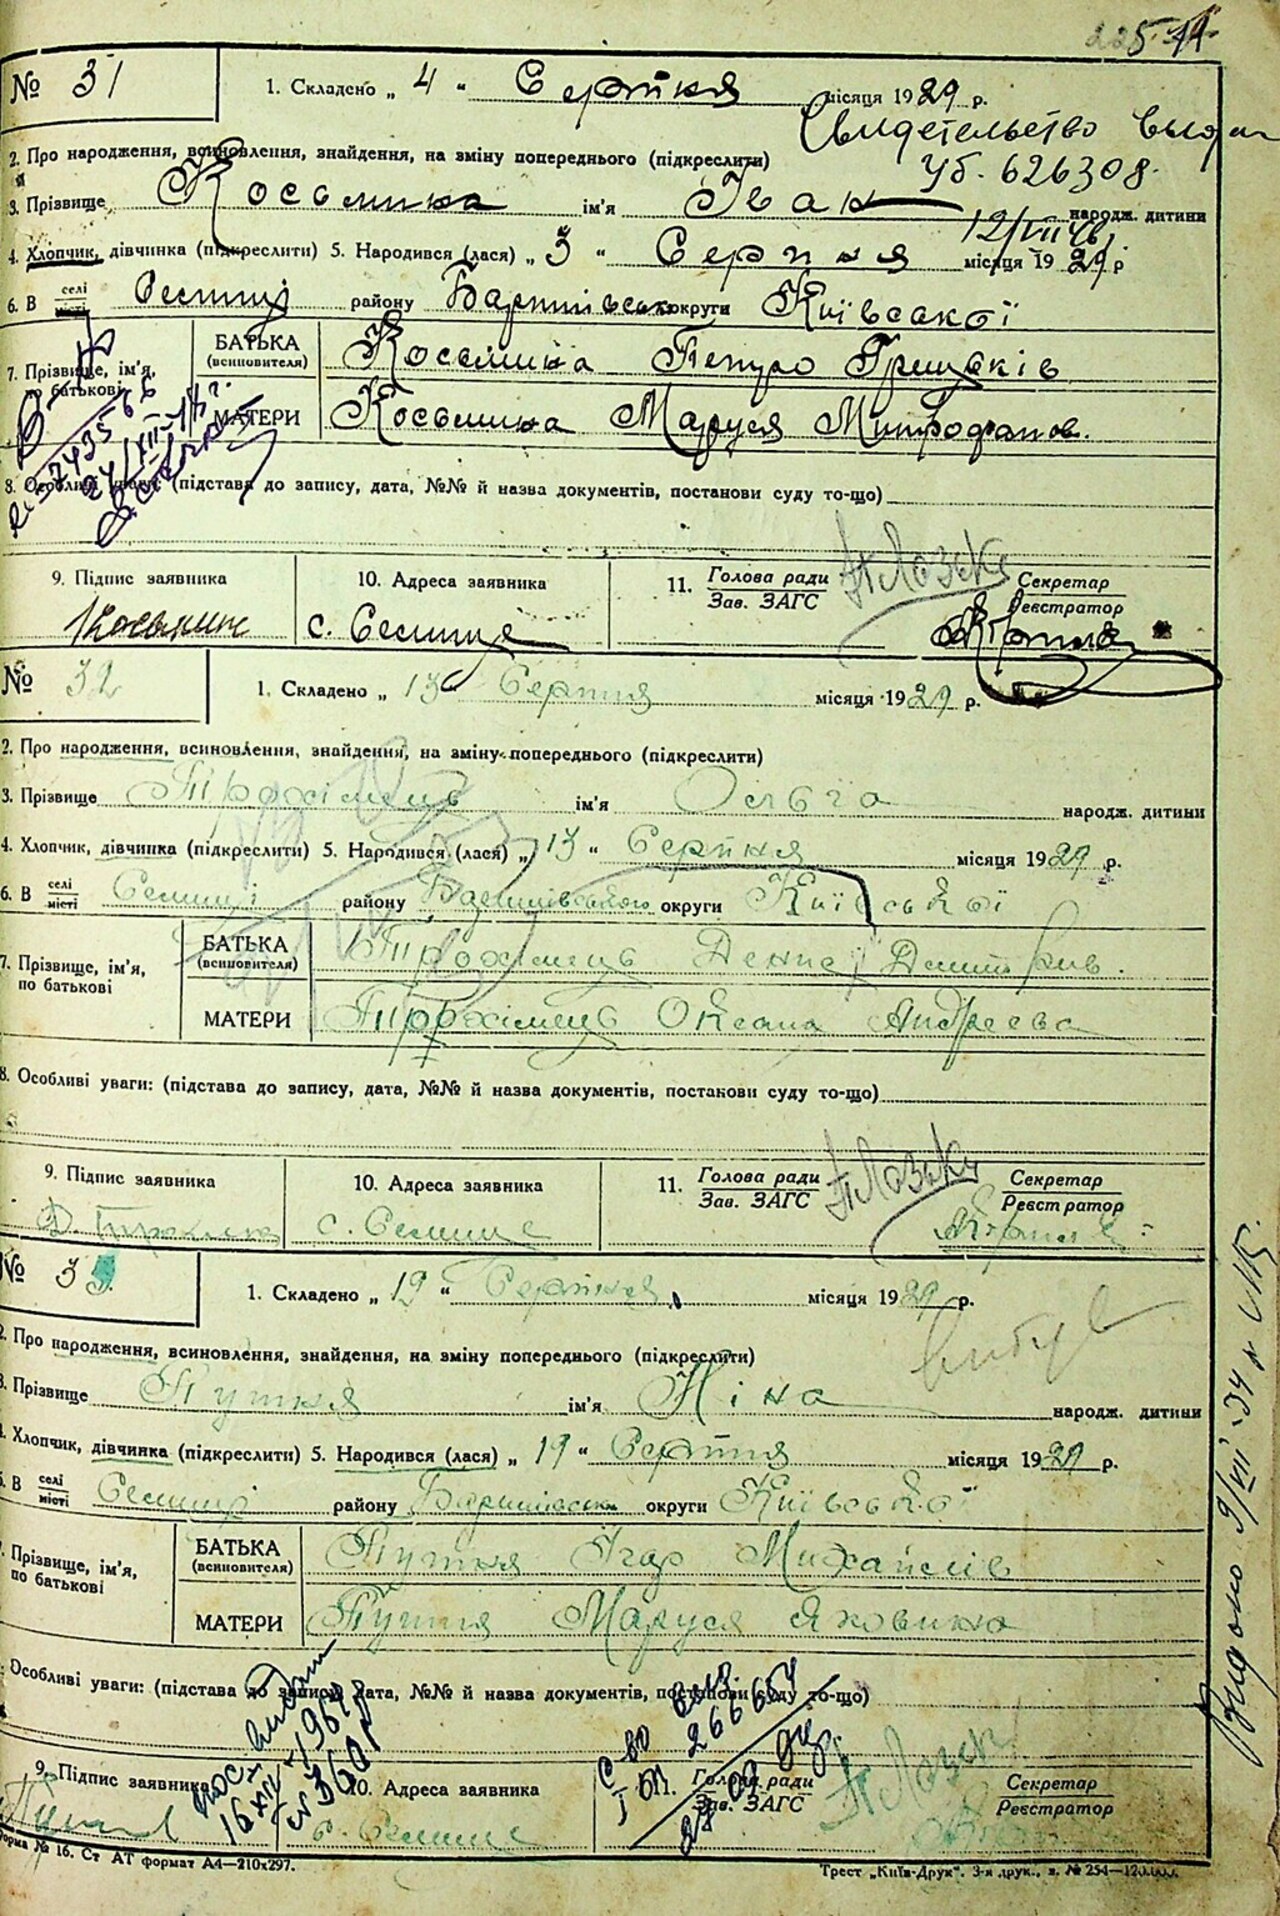 № 31
1. Складено „ 4 “ Серпня місяця 1929 р.
Свидетельство выдан
2. Про народження, всиновлення, знайдення, на зміну попереднього (підкреслити)
Уб. 626308.
3. Прізвище Косьмина ім'я Іван народж. дитини
12/VII 46
4. Хлопчик, дівчинка (підкреслити) 5. Народився (лася) „ 3 “ Серпня місяця 1929 р
6. В селі місті Селищі району Баришівськ округи Київської
7. Прізвище, ім'я, по батькові
БАТЬКА (всиновителя) Косьмина Петро Грицьків
МАТЕРИ Косьмина Маруся Митрофанов.
8. Особливі уваги: (підстава до запису, дата, №№ й назва документів, постанови суду то-що)
9. Підпис заявника 10. Адреса заявника 11. Голова ради Зав. ЗАГС Секретар Реєстратор
с. Селище
№ 32
1. Складено „ 13 “ Серпня місяця 1929 р.
2. Про народження, всиновлення, знайдення, на зміну попереднього (підкреслити)
3. Прізвище Трохімець ім'я Ольга народж. дитини
4. Хлопчик, дівчинка (підкреслити) 5. Народився (лася) „ 13 “ Серпня місяця 1929 р.
6. В селі місті Селищі району Баришівського округи Київської
7. Прізвище, ім'я, по батькові
БАТЬКА (всиновителя) Трохімець Денис
МАТЕРИ Трохімець Оксана Андреєва
8. Особливі уваги: (підстава до запису, дата, №№ й назва документів, постанови суду то-що)
9. Підпис заявника 10. Адреса заявника 11. Голова ради Зав. ЗАГС Секретар Реєстратор
с. Селище
№ 33
1. Складено „ 19 “ Серпня місяця 1929 р.
вибув
2. Про народження, всиновлення, знайдення, на зміну попереднього (підкреслити)
3. Прізвище ім'я Ніна народж. дитини
4. Хлопчик, дівчинка (підкреслити) 5. Народився (лася) „ 19 “ Серпня місяця 1929 р.
6. В селі місті Селищі району Баришівськ округи Київської
7. Прізвище, ім'я, по батькові
БАТЬКА (всиновителя) Ігор Михайлів
МАТЕРИ Маруся Яковивна
Особливі уваги: (підстава до запису, дата, №№ й назва документів, постанови суду то-що)
9. Підпис заявника 10. Адреса заявника Голова ради Зав. ЗАГС Секретар Реєстратор
с. Селище
Форма № 16. Ст АТ формат А4—210х297.
Трест „Київ-Друк“. 3-я друк., з. № 254—120.000.